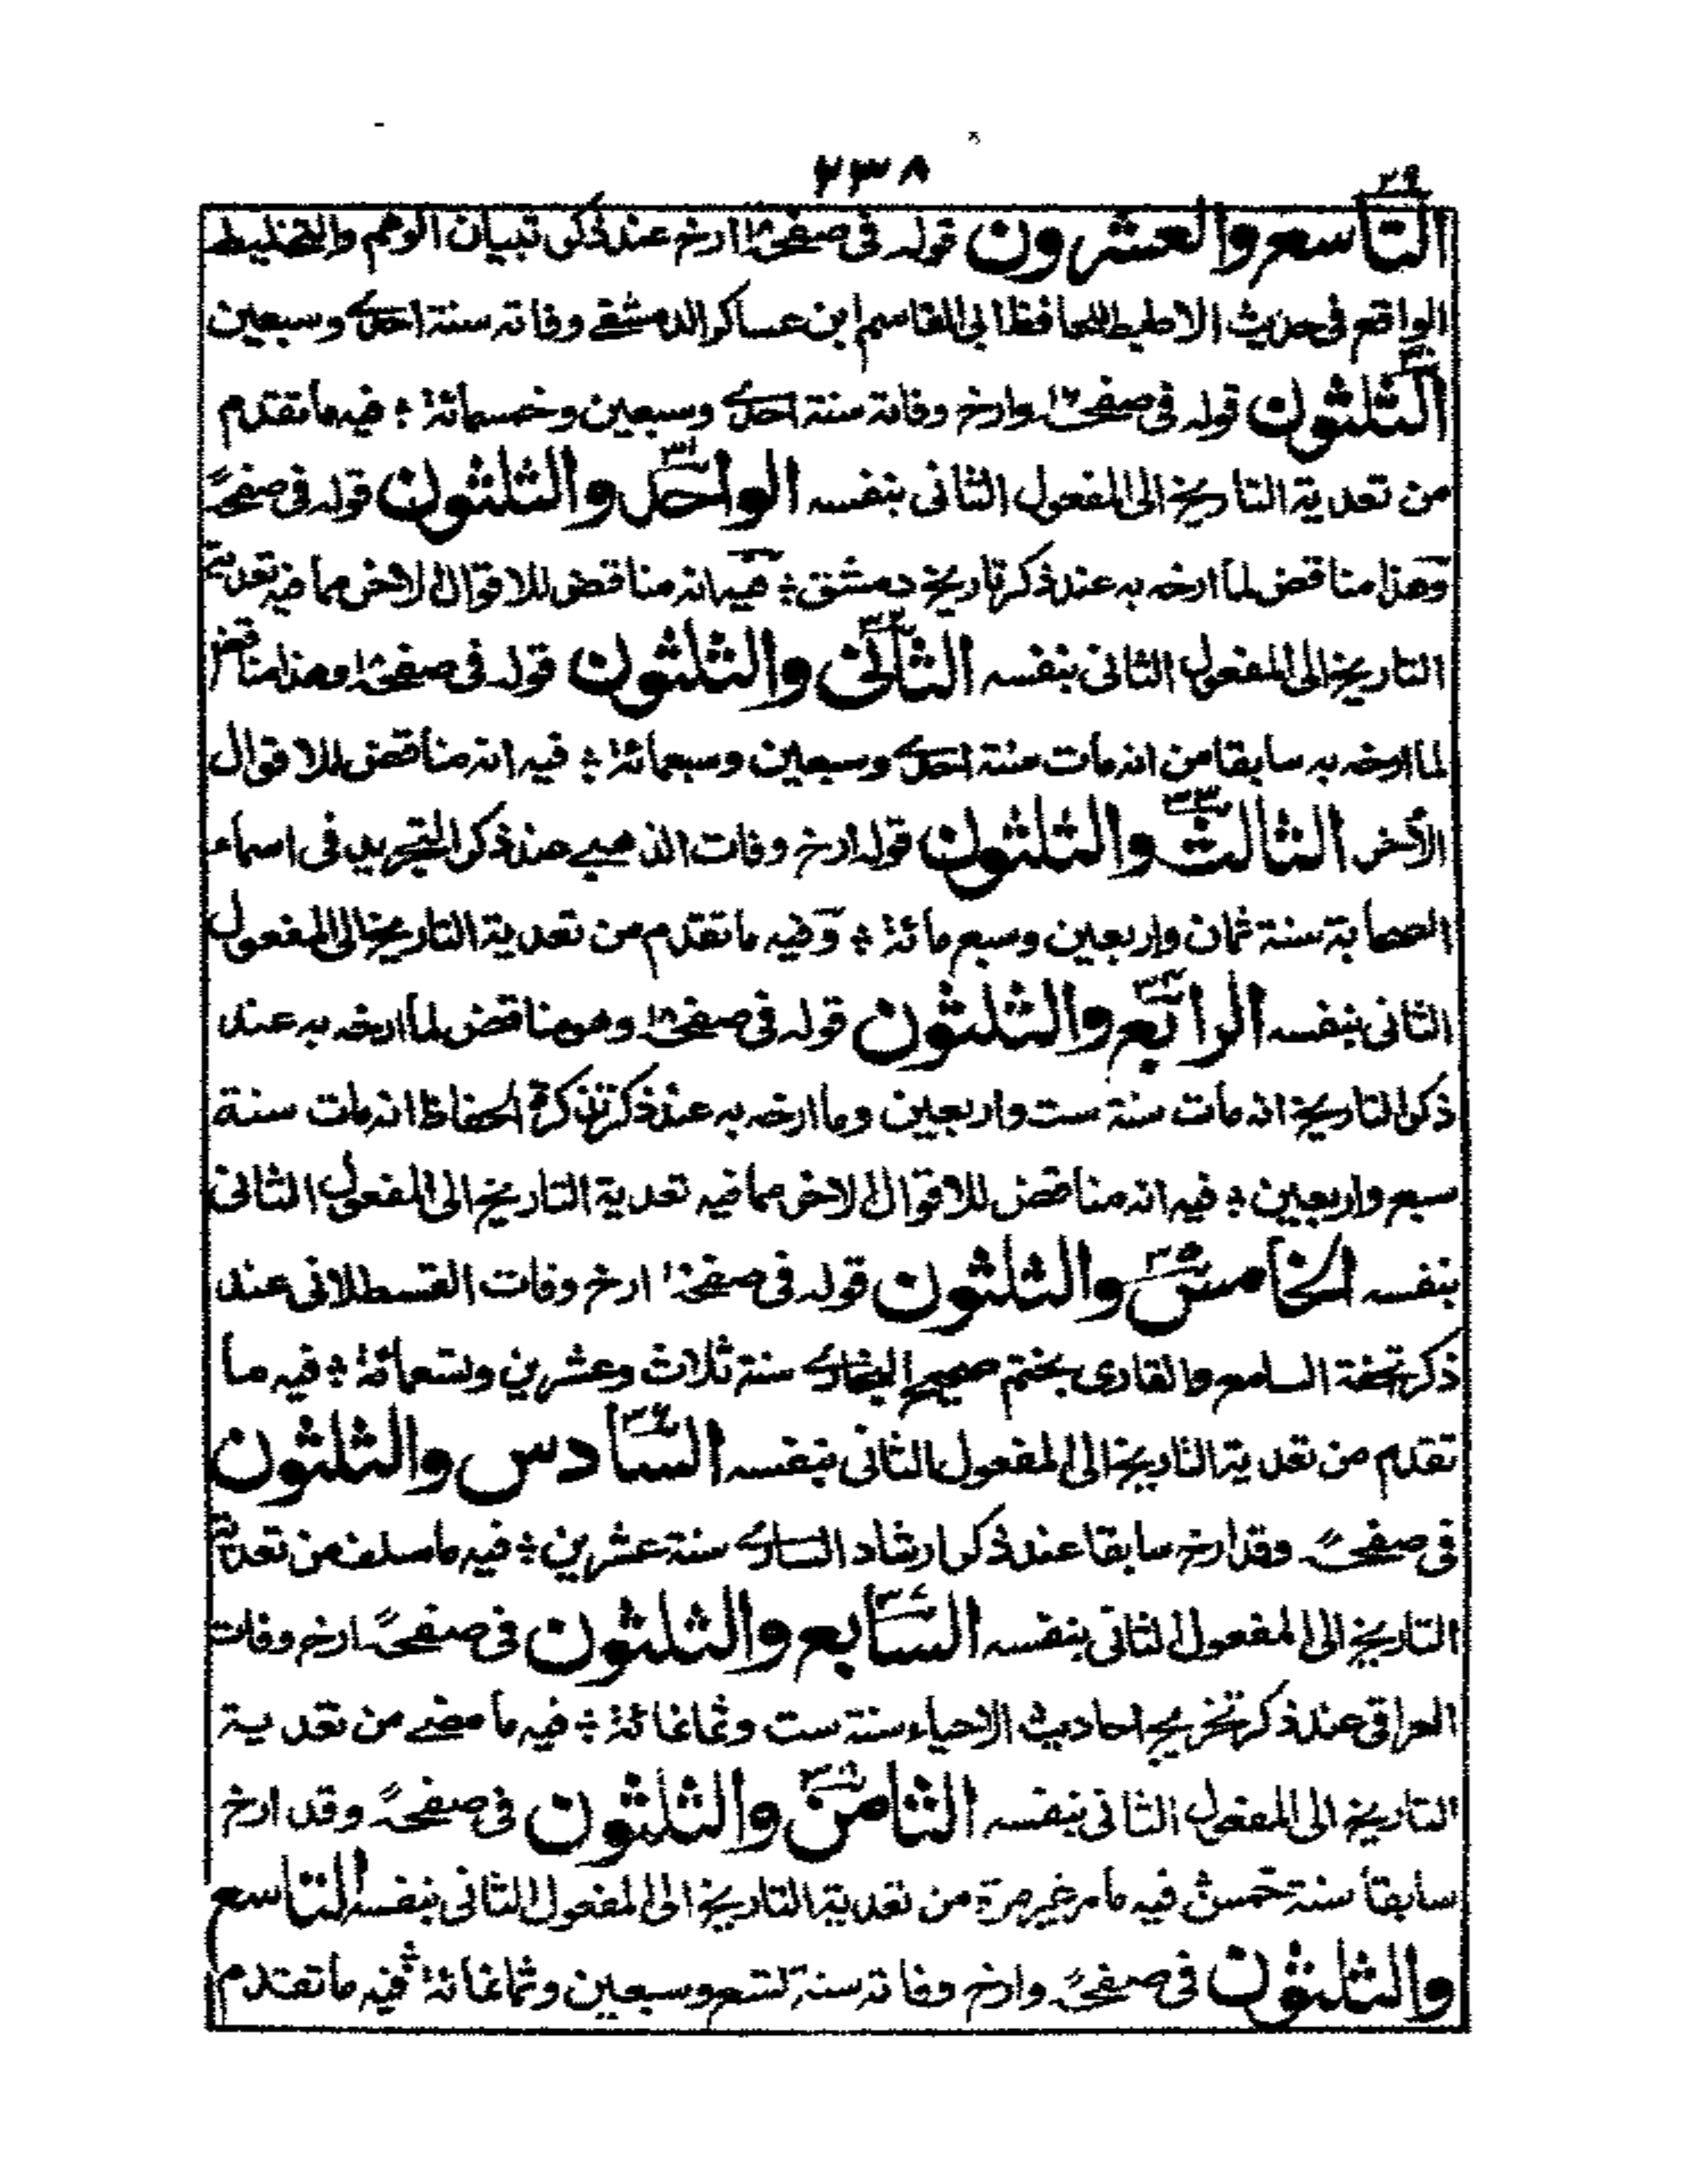 ٢٣٨
٢٩
التاسع والعشرون قوله فى صفحة ١٨ ارخ عند ذكر تبيان الوهم والتخليط
الواقع فى حديث الاطيط للحافظ ابى القاسم ابن عساكر الدمشقى وفاته سنة احدى وسبعين
الثلثون قوله فى صفحة وارخ وفاته سنة احدى وسبعين وخمسمائة ؛ فيه ما تقدم
من تعدية التاريخ الى المفعول الثانى بنفسه الواحد والثلثون قوله فى صفحة
وهذا مناقض لما ارخه به عند ذكر تاريخ دمشق ؛ فيه انه مناقض للاقوال الاخر مما فيه تعدية
التاريخ الى المفعول الثانى بنفسه الثانى والثلثون قوله فى صفحة وهذا مناقض
لما ارخه به سابقا من انه مات سنة احدى وسبعين وسبعمائة ؛ فيه انه مناقض للاقوال
الأخر الثالث والثلثون قوله ارخ وفات الذهبى عند ذكر التجريد فى اسماء
الصحابة سنة ثمان واربعين وسبع مائة ؛ وفيه ما تقدم من تعدية التاريخ الى المفعول
الثانى بنفسه الرابع والثلثون قوله فى صفحة ١٨ وهو مناقض لما ارخه به عند
ذكر التاريخ انه مات سنة ست واربعين وما ارخه به عند ذكر تذكرة الحفاظ انه مات سنة
سبع واربعين ؛ فيه انه مناقض للاقوال الاخر مما فيه تعدية التاريخ الى المفعول الثانى
بنفسه الخامس والثلثون قوله فى صفحة ارخ وفات القسطلانى عند
ذكر تحفة السامع والقارى بختم صحيح البخارى سنة ثلاث وعشرين وتسعمائة ؛ فيه ما
تقدم من تعدية التاريخ الى المفعول الثانى بنفسه السادس والثلثون
فى صفحة وقد ارخ سابقا عند ذكر ارشاد السارى سنة عشرين ؛ فيه ما سلف من تعدية
التاريخ الى المفعول الثانى بنفسه السابع والثلثون فى صفحة ارخ وفات
العراقى عند ذكر تخريج احاديث الاحياء سنة ست وثمانمائة ؛ فيه ما مضى من تعدية
التاريخ الى المفعول الثانى بنفسه الثامن والثلثون فى صفحة وقد ارخ
سابقا سنة خمس فيه ما مر غير مرة من تعدية التاريخ الى المفعول الثانى بنفسه التاسع
والثلثون فى صفحة وارخ وفاته سنة تسع وسبعين وثمانمائة فيه ما تقدم